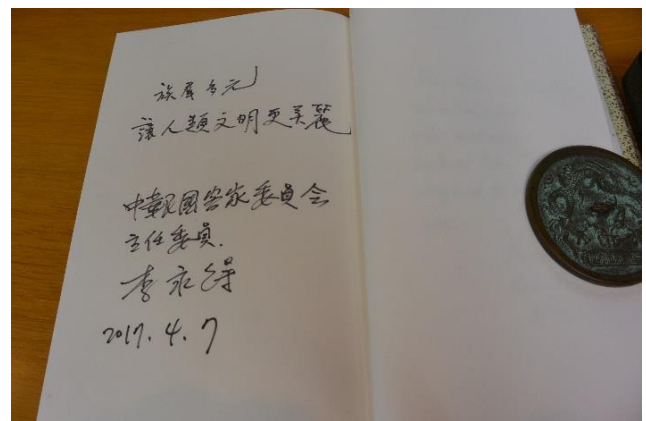 族群多元
讓人類文明更美麗
中華民國客家委員会
主任委員.
李永得
2017.4.7